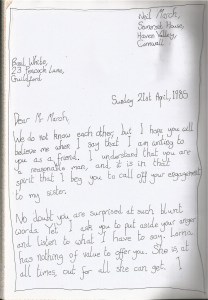 Neil March,
Somerset House,
Haven Valley,
Cornwall.
Basil White,
23 Peacock Lane,
Guildford
Sunday 21st April, 1985
Dear Mr March,
We do not know each other, but I hope you will
believe me when I say that I am writing to
you as a friend. I understand that you are
a reasonable man, and it is in that
spirit that I beg you to call off your engagement
to my sister.
No doubt you are surprised at such blunt
words. Yet I ask you to put aside your anger
and listen to what I have to say. Lorna
has nothing of value to offer you. She is at
all times, out for all she can get. I